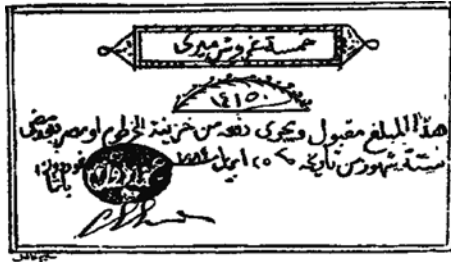 خمسة غروش ميرى
١٤١٥٠
هذا المبلغ مقبول ويجرى دفعه من خزينة الخرطوم او مصر بعد مضى
ستة شهور من تاريخه ٢٥ ابريل ١٨٨٤
غوردون باشا